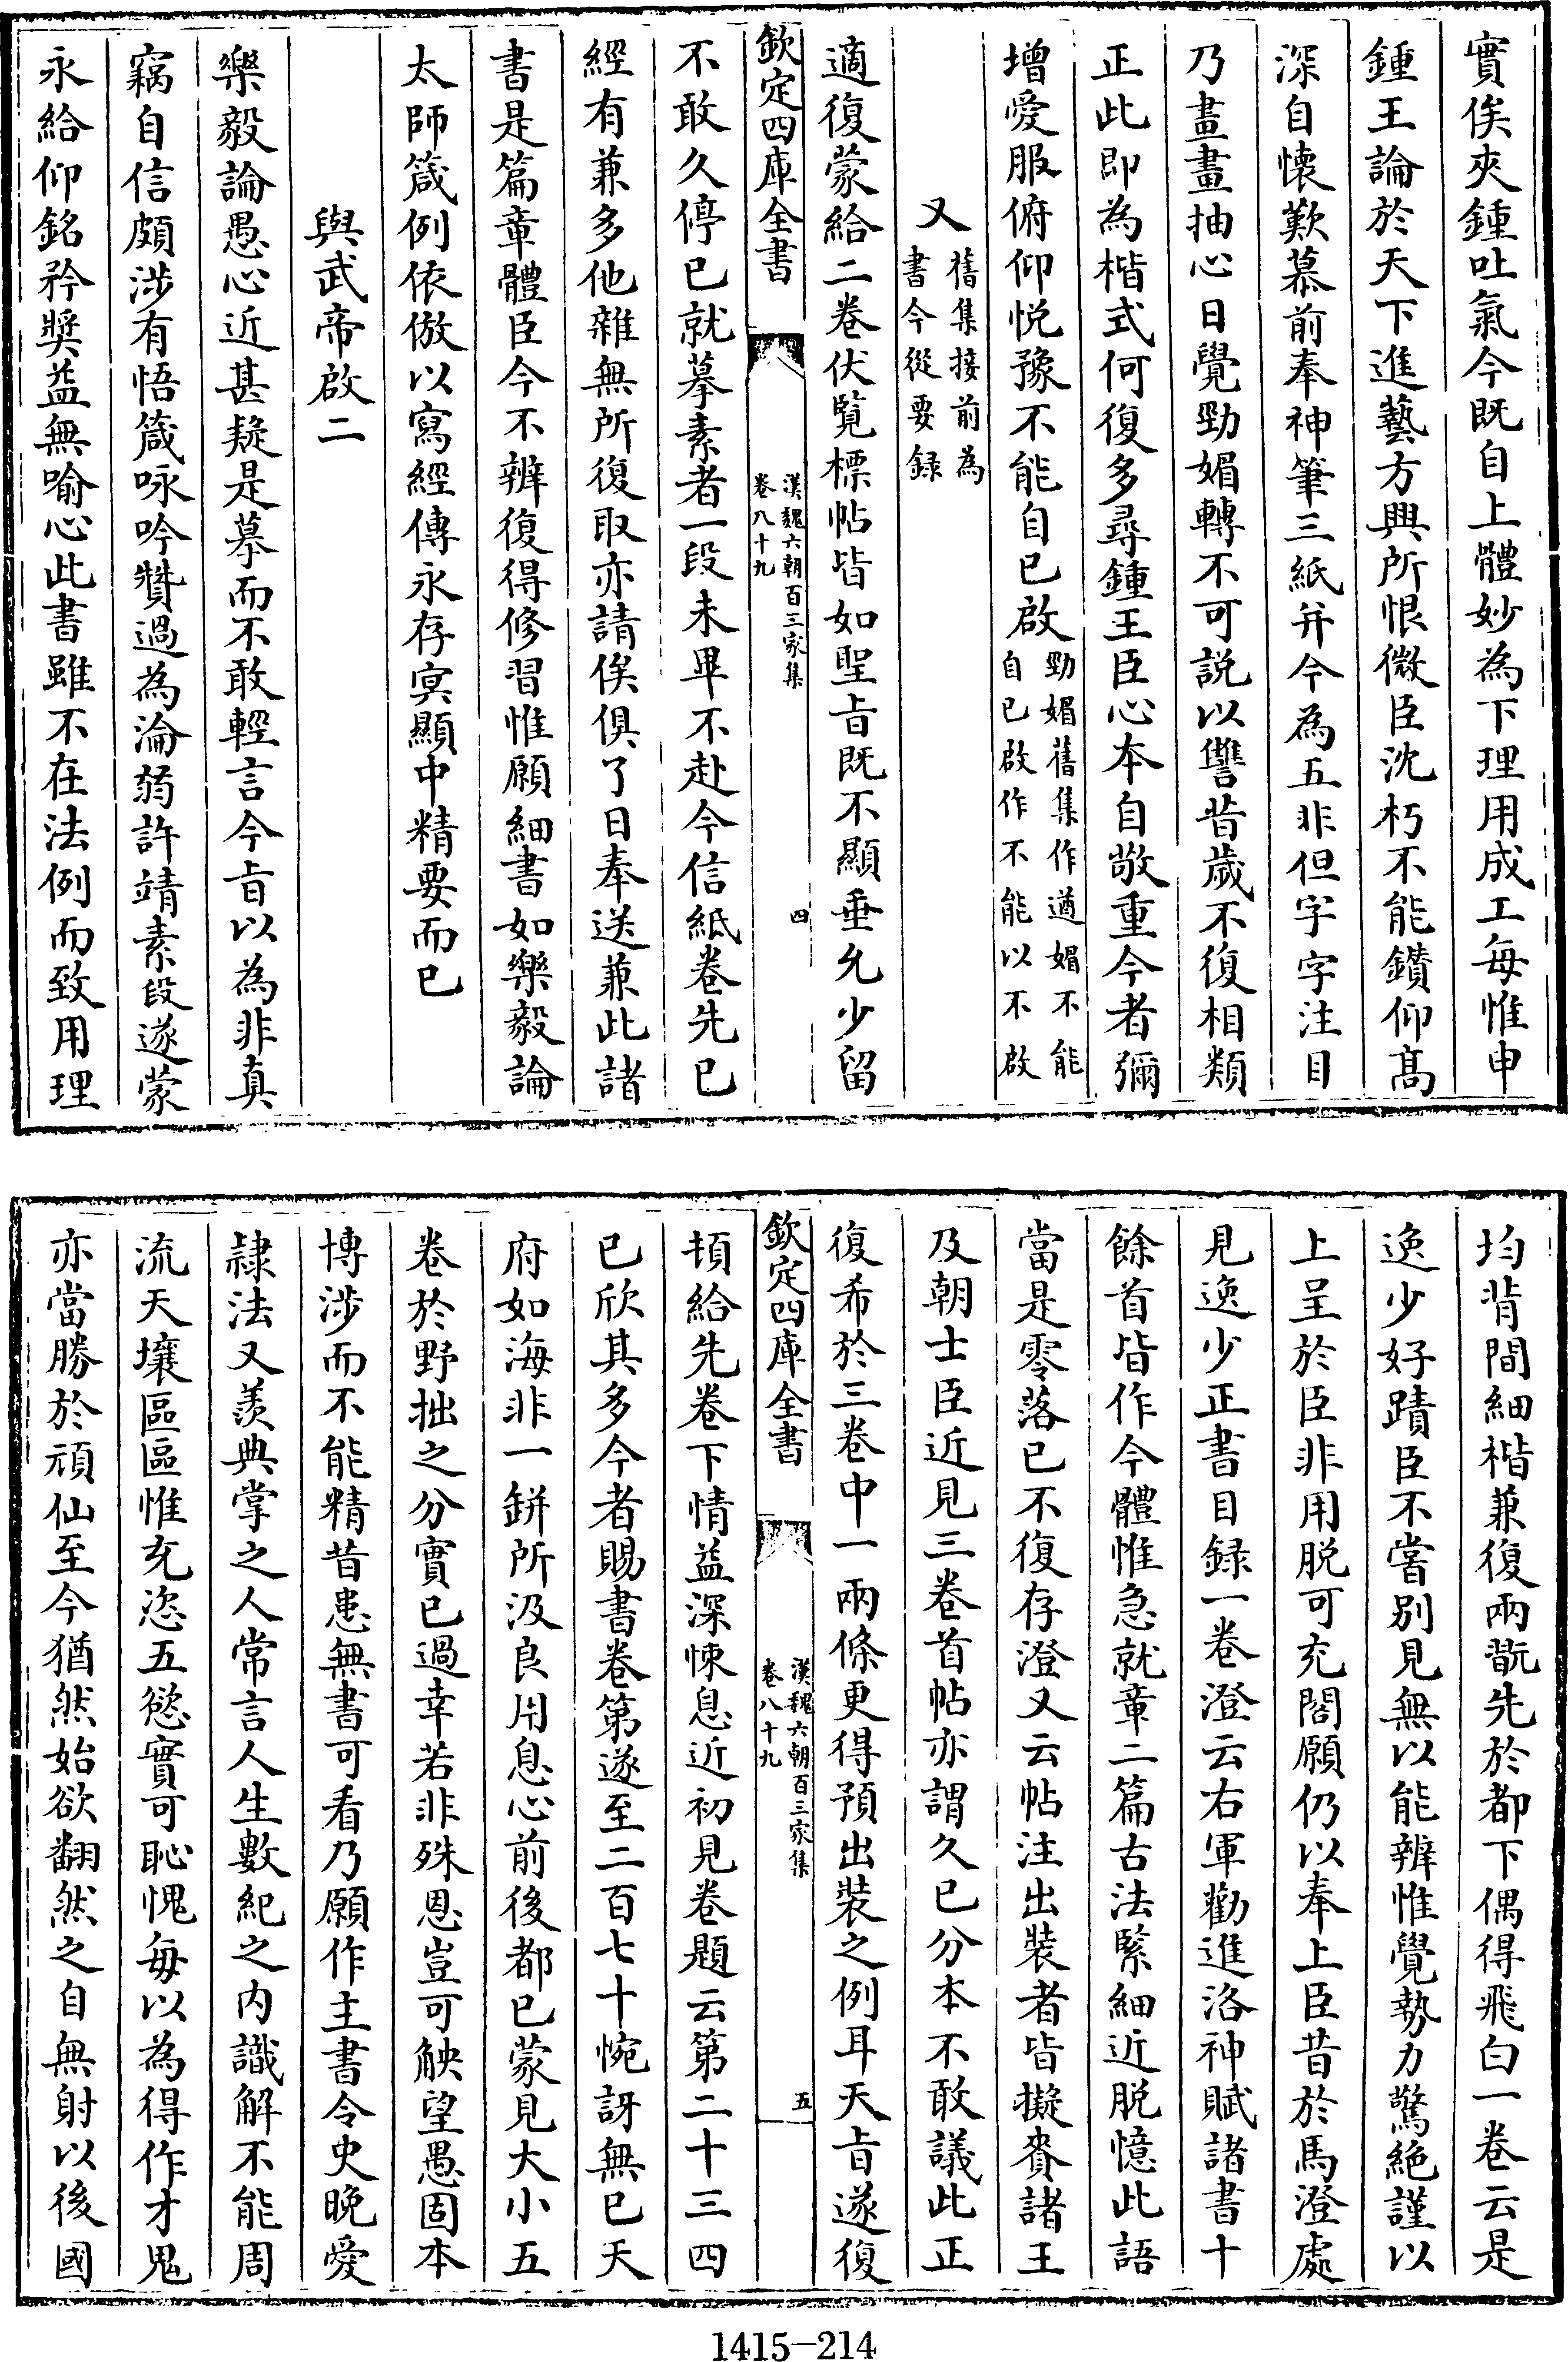 實俟夾鍾吐氣今既自上體妙為下理用成工每惟申
鍾王論於天下進藝方興所恨微臣沈朽不能鑽仰髙
深自懐歎慕前奉神筆三紙并今為五非但字字注目
乃畫畫抽心日覺勁媚轉不可説以讐昔歲不復相類
正此即為楷式何復多尋鍾王臣心本自敬重今者彌
增愛服俯仰悦豫不能自已啟勁媚舊集作遒媚不能自已啟作不能以不啟
又舊集接前為書今從要録
適復蒙給二卷伏覧標帖皆如聖旨既不顯垂允少留
欽定四庫全書
漢魏六朝百三家集
卷八十九
四
不敢久停已就摹素者一段未畢不赴今信紙卷先已
經有兼多他雜無所復取亦請俟俱了日奉送兼此諸
書是篇章體臣今不辨復得修習惟願細書如樂毅論
太師箴例依倣以寫經傳永存㝠顯中精要而已
與武帝啟二
樂毅論愚心近甚疑是摹而不敢輕言今旨以為非真
竊自信頗涉有悟箴咏吟贊過為淪弱許靖素段遂蒙
永給仰銘矜奬益無喻心此書雖不在法例而致用理
均背間細楷兼復兩翫先於都下偶得飛白一卷云是
逸少好蹟臣不嘗别見無以能辨惟覺勢力驚絶謹以
上呈於臣非用脱可充閣願仍以奉上臣昔於馬澄處
見逸少正書目録一卷澄云右軍勸進洛神賦諸書十
餘首皆作今體惟急就章二篇古法緊細近脱憶此語
當是零落已不復存澄又云帖注出裝者皆擬賚諸王
及朝士臣近見三卷首帖亦謂久已分本不敢議此正
復希於三卷中一兩條更得預出裝之例耳天旨遂復
欽定四庫全書
漢魏六朝百三家集
卷八十九
五
頓給先卷下情益深悚息近初見卷題云第二十三四
已欣其多今者賜書卷第遂至二百七十惋訝無已天
府如海非一缾所汲良用息心前後都已蒙見大小五
卷於野拙之分實已過幸若非殊恩豈可觖望愚固本
博涉而不能精昔患無書可看乃願作主書令史晩愛
隷法又羨典掌之人常言人生數紀之内識解不能周
流天壤區區惟充恣五慾實可恥愧每以為得作才鬼
亦當勝於頑仙至今猶然始欲翻然之自無射以後國
1415—214